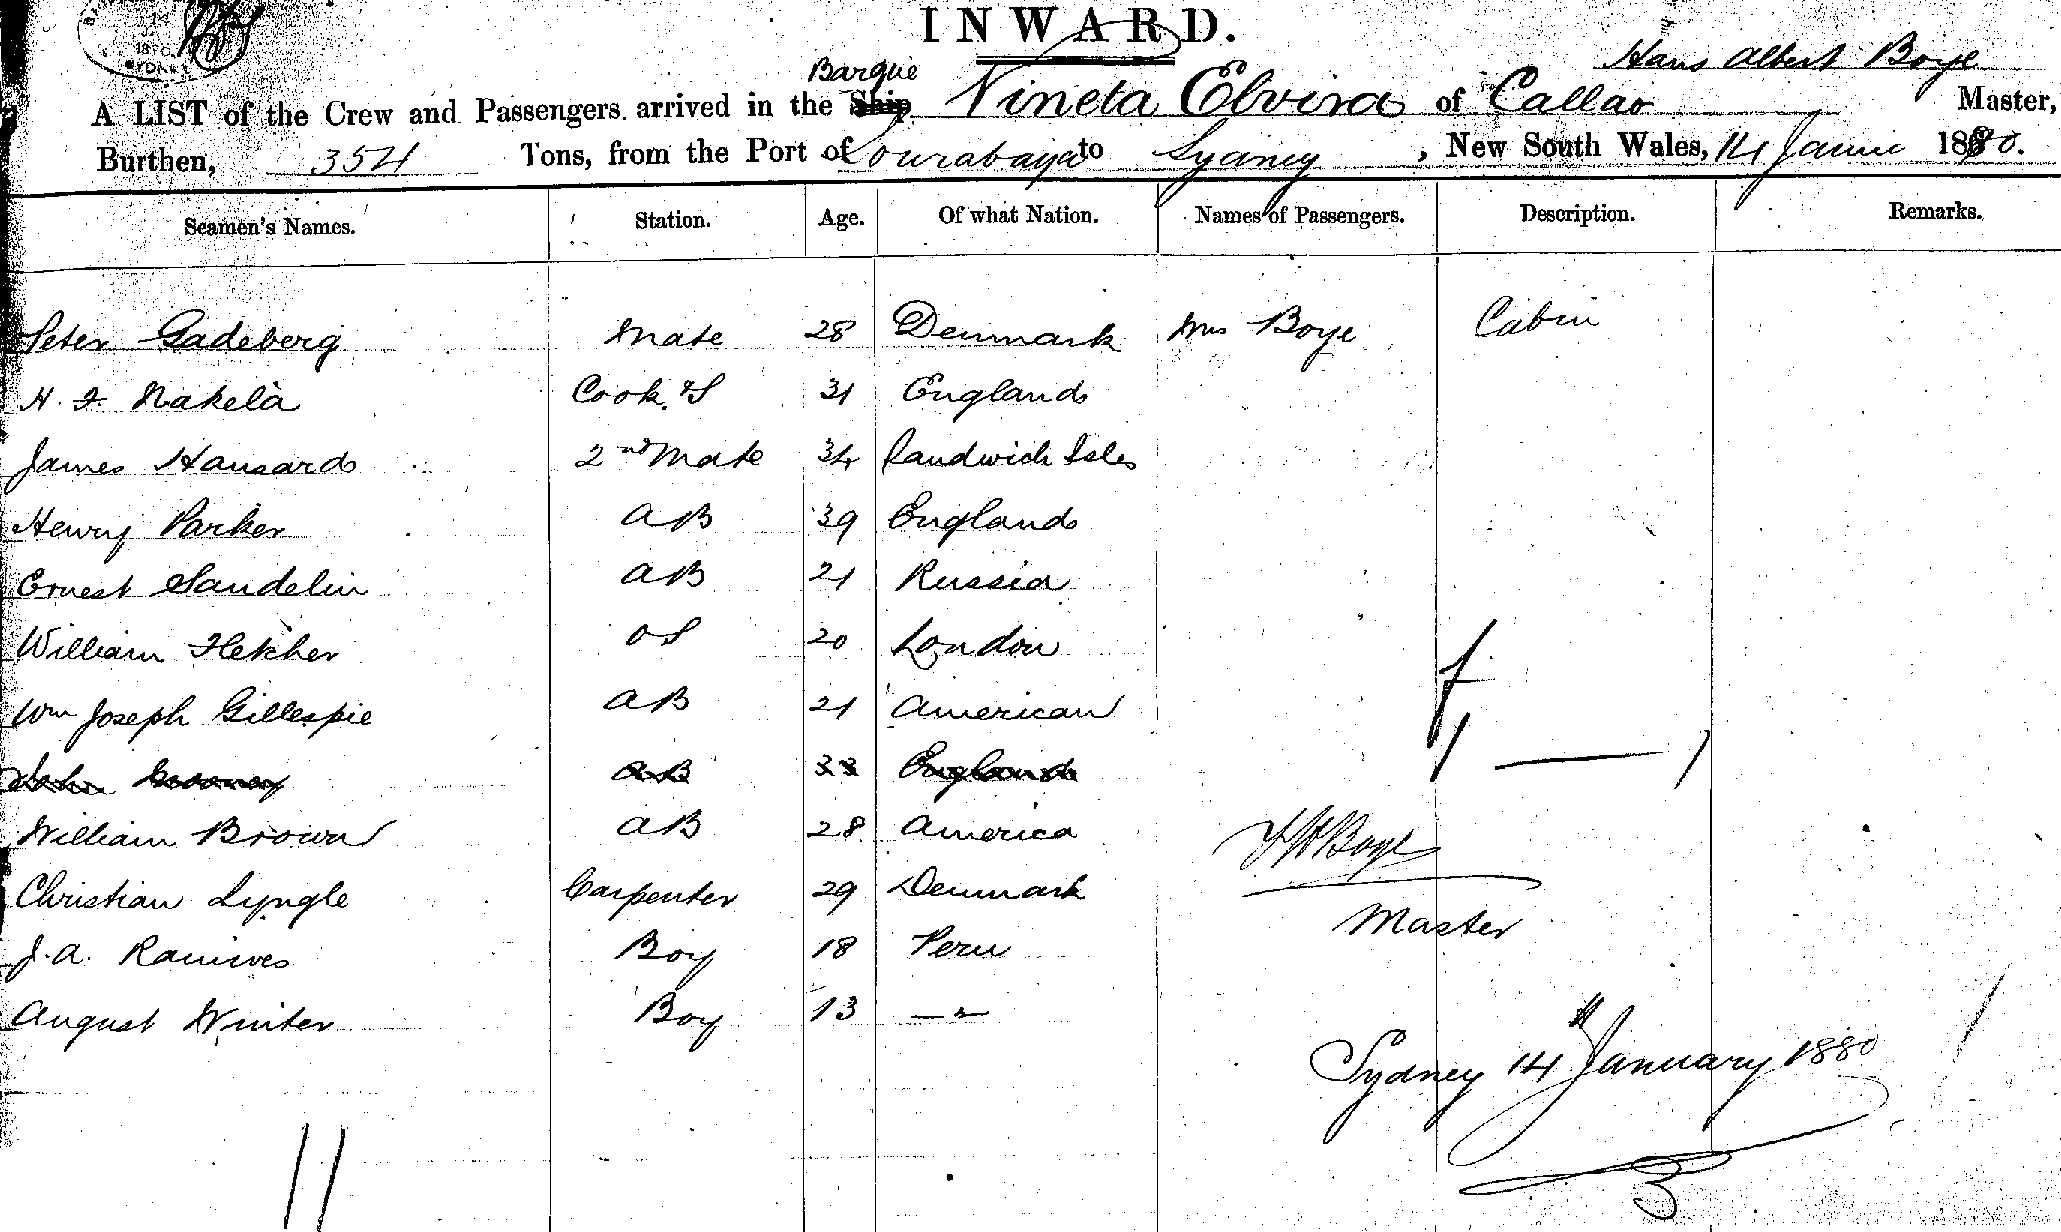 INWARD.
Hans Albert Boye
Barque
A LIST of the Crew and Passengers arrived in the Ship Nineta Elvira of Callao Master,
Burthen, 354 Tons, from the Port of Sourabaya to Sydney, New South Wales, 14 Janur 1880.
Seamen's Names. Station. Age. Of what Nation. Names of Passengers. Description. Remarks.
Peter Gadeberg Mate 28 Denmark Mrs Boye Cabin
H. F. Nakela Cook & S 31 England
James Hansard 2nd Mate 34 Sandwich Isles
Henry Parker AB 39 England
Ernest Sandelin AB 21 Russia
William Fletcher OS 20 London
Wm Joseph Gillespie AB 21 American
John AB 33 England
William Brown AB 28 America
HABoye
Christian Lyngle Carpenter 29 Denmark
Master
J. A. Ramires Boy 18 Peru
August Winter Boy 13 — " —
Sydney 14th January 1880
11
3